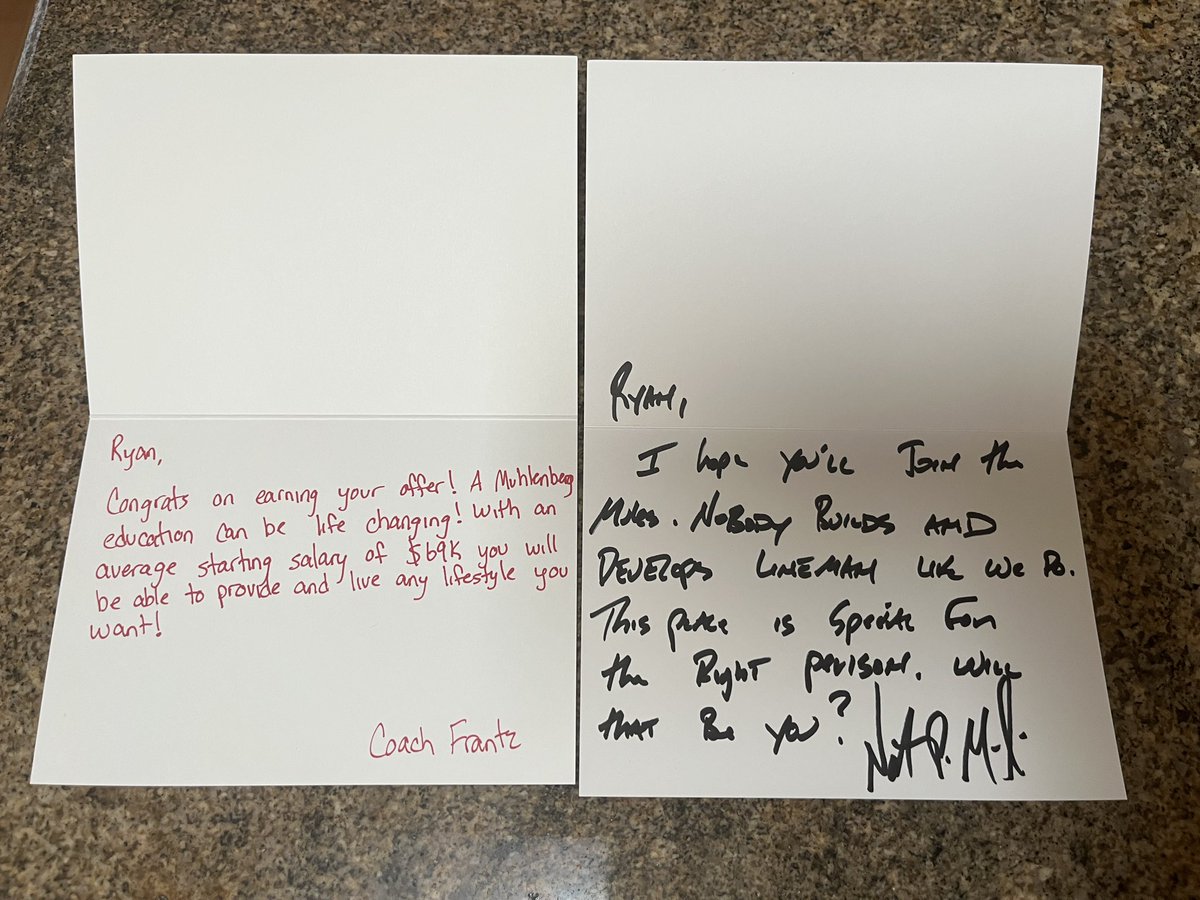 Ryan,
Congrats on earning your offer! A Muhlenberg
education can be life changing! With an
average starting salary of $69K you will
be able to provide and live any lifestyle you
want!
Coach Frantz
RYAN,
I hope you'll Join the
Mules. NOBODY BUILDS AND
DEVELOPS LINEMAN LIKE WE DO.
This place is Special For
the Right person. WILL
that Be you?